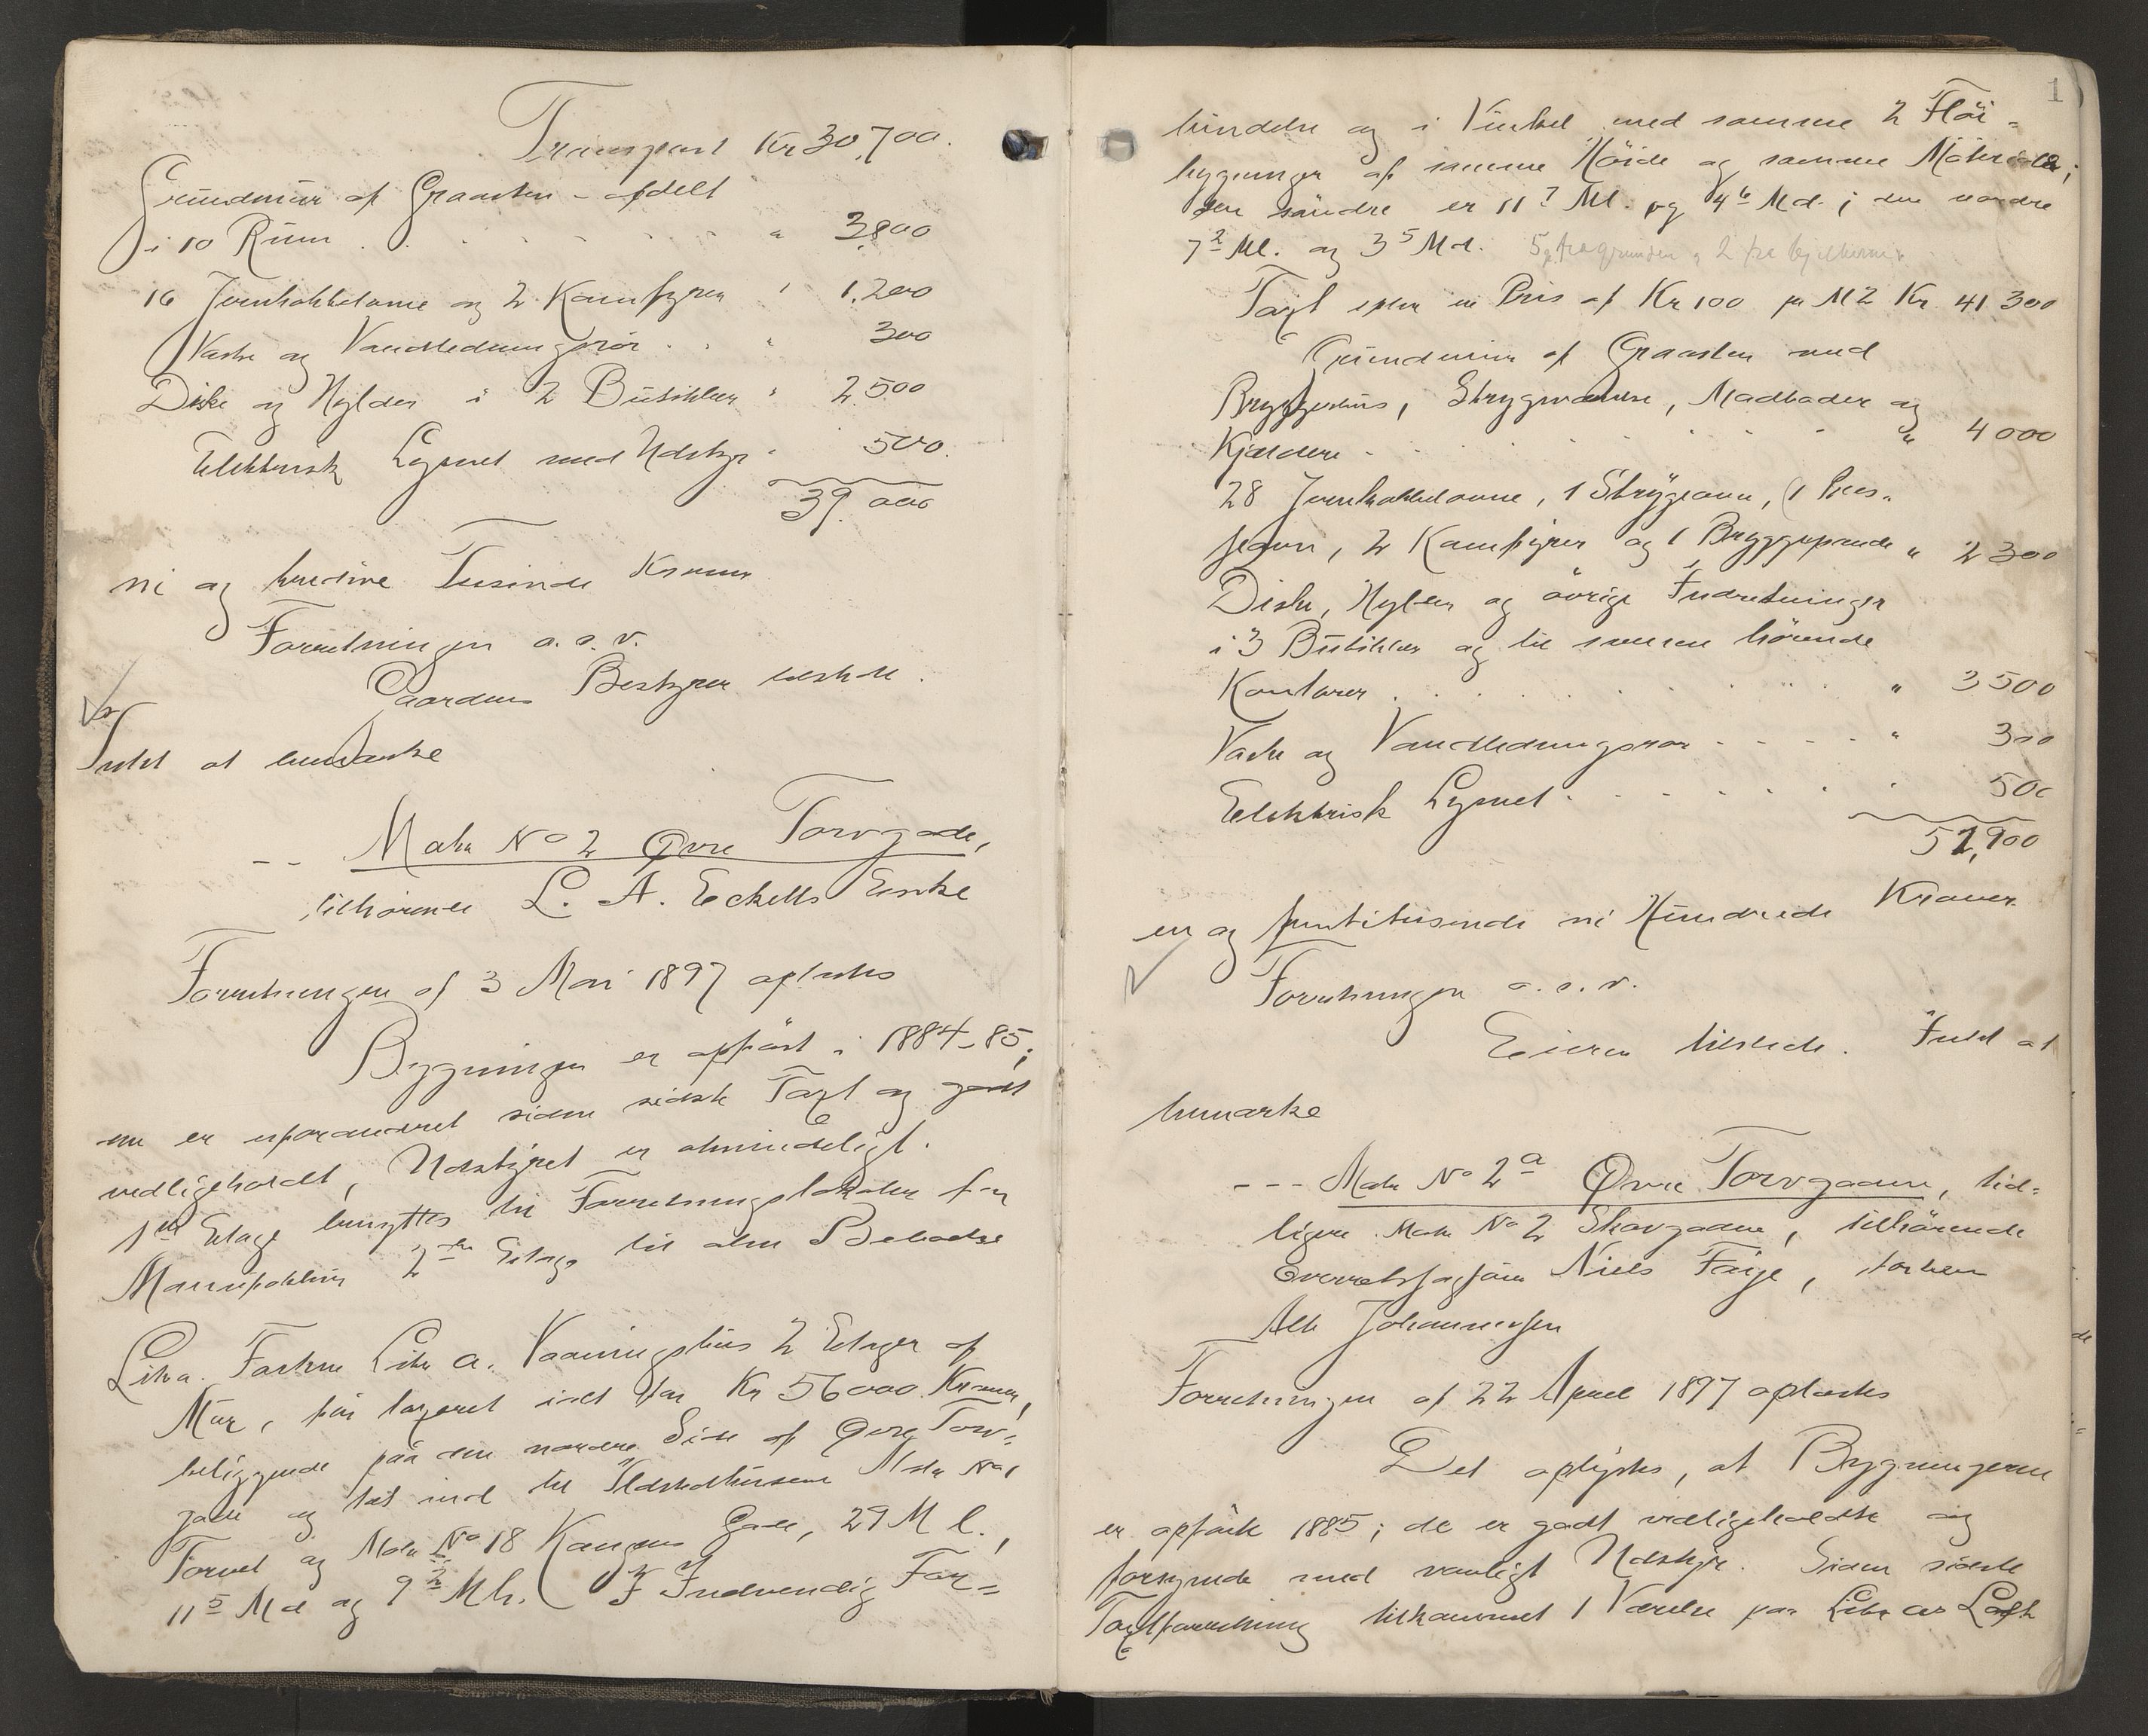 Transport Kr 30,700.
Grundmur af Graasten - afdelt
i 10 Rum . . . . . . . " 3,800
16 Jernkakkelovne og 2 Komfyrer " 1,200
Vaske og Vandledningsrör . . " 300
Diske og Hylder i 2 Butikker " 2,500
Elektrisk Lysnet med Udstyr " 500.
39.000
ni og tredive Tusinde Kroner
Forretningen o.s.v.
Gaardens Bestyrer tilstede.
Intet at bemærke
-- Matr No 2 Övre Torvgade,
tilhörende L. A. Eckells Enke
Forretningen af 3 Mai 1897 oplæstes
Bygningen er opfört i 1884-85;
den er uforandret siden sidste Taxt og godt
vedligeholdt, Udstyret er almindeligt.
1ste Etage benyttes til Forretningslokaler for
Manufaktur 2den Etage til alm Beboelse
Litra. Fortsæt Litr a. Vaaningshus 2 Etager af
Mur, för taxeret incl for Kr 56000 Kroner,
beliggende paa den nordre Side af Övre Torv-
gade og tæt ind til Ildstedhusene Matr No 1
Torvet og Matr No 18 Kongens Gade, 29 M l.,
11 5 M d og 9 2 M h. I Indvendig For=
1
bindelse og i Vinkel med samme 2 Flöi=
bygninger af samme Höide og samme Materiale;
den söndre er 11 7 Ml. og 4 6 Md. ; den nordre
7 2 Ml. og 3 5 Md. 5 fra grunden, 2 fra bjelkerne
Taxt efter en Pris af Kr 100 pr M2 Kr. 41 300
Grundmur af Graasten med
Bryggerhus, Strygeværelse, Madboder og
Kjældere . . . . . . . . " 4 000
28 Jernkakkelovne, 1 Strygeovn, 1 Pres-
seovn, 2 Komfyrer og 1 Bryggepande " 2 300
Diske, Hylder og övrige Indretninger
i 3 Butikker og til samme hörende
Kontorer . . . . . . . . " 3 500
Vaske og Vandledningsrör - - - - " 300
Elektrisk Lysnet . . . . . . . 500
51,900
en og femtitusinde ni Hundrede Kroner
Forretningen o.s.v.
Eieren tilstede. Intet at
bemærke
--- Matr No 2 a Övre Torvgaden, tid=
ligere Matr No 2 Skovgaden, tilhörende
Overretssagförer Niels Faije,
Alb Johannessen
Forretningen af 22 April 1897 oplæstes
Det oplystes, at Bygningerne
er opförte 1885; de er godt vedligeholdte og
forsynede med vanligt Udstyr. Siden sidste
Taxtforretning tilkommet 1 Værelse paa Litr as Loft